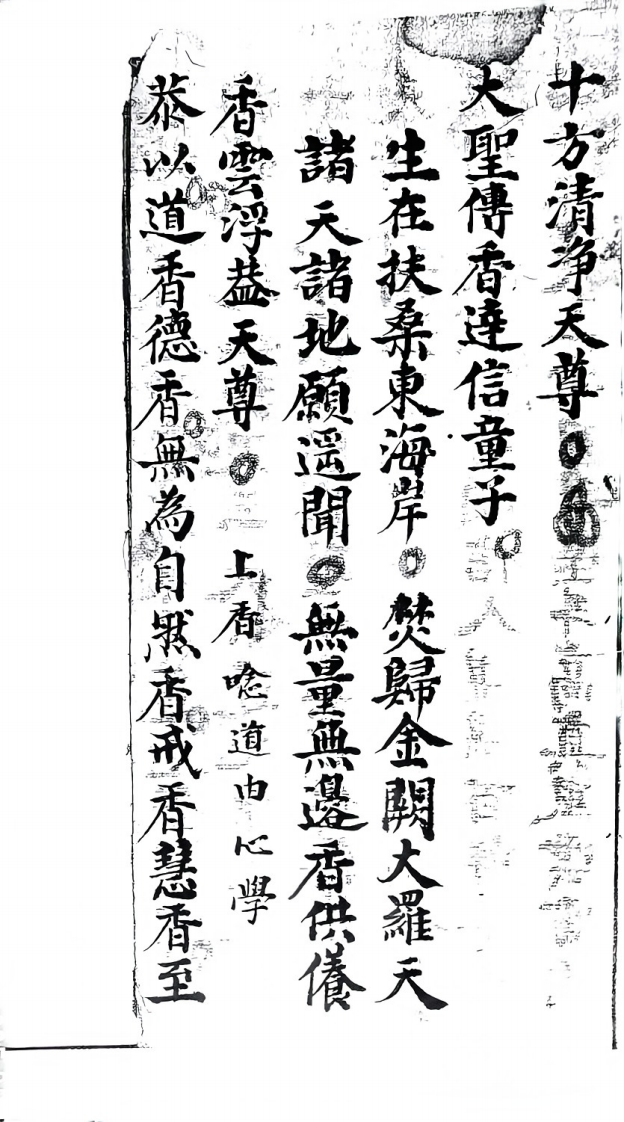 十方清淨天尊
大聖傳香達信童子
生在扶桑東海岸 焚歸金闕大羅天
諸天諸地願遥聞 無量無邊香供養
香雲浮葢天尊 上香唸道由心學
恭以道香德香無為自然香戒香慧香至